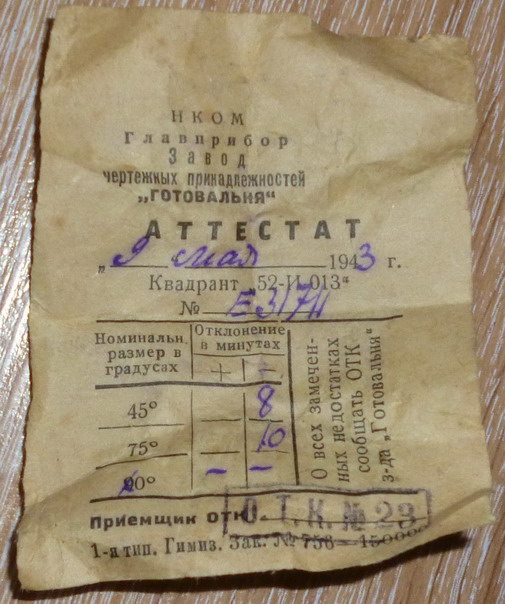 НКОМ
Главприбор
Завод
чертежных принадлежностей
„ГОТОВАЛЬНЯ“
АТТЕСТАТ
„9 мая 1943 г.
Квадрант „52-И-013“
№ Е
Номинальн. размер в градусах
Отклонение в минутах
+ −
45° 8
75° 10
90° − −
О всех замечен-
ных недостатках
сообщать ОТК
з-да „Готовальня“
Приемщик ОТК
О.Т.К. № 23
1-я тип. Гимиз. Зак. № 756—150000